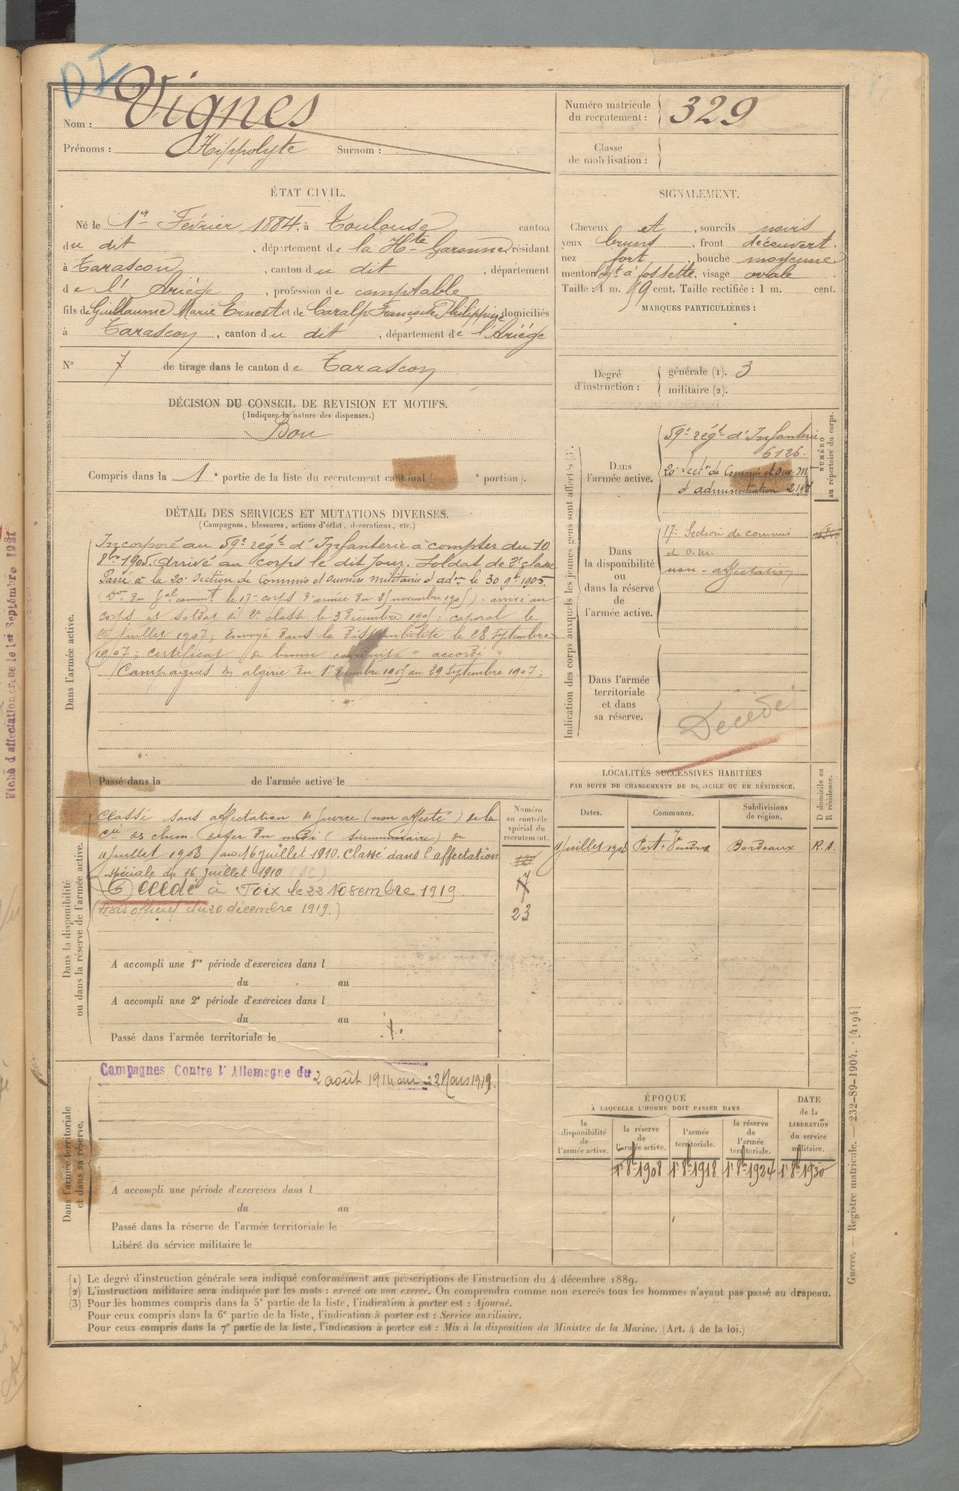 DI
Nom : Vignes
Prénoms : Hippolyte Surnom :
Numéro matricule du recrutement : 329
Classe de mobilisation :
ÉTAT CIVIL.
Né le 1er Février 1884, à Toulouse canton
du dit, département de la Hte Garonne, résidant
à Tarascon, canton du dit, département
de l'Ariège, profession de comptable
fils de Guillaume Marie Ernest et de Caralp Françoise Philippine, domiciliés
à Tarascon, canton du dit, département de l'Ariège
N° 7 de tirage dans le canton de Tarascon
SIGNALEMENT.
Cheveux et, sourcils noirs
yeux bruns, front découvert.
nez fort, bouche moyenne
menton à fossette, visage ovale
Taille : 1 m. cent. Taille rectifiée : 1 m. cent.
MARQUES PARTICULIÈRES :
Degré d'instruction :
générale (1). 3
militaire (2).
DÉCISION DU CONSEIL DE REVISION ET MOTIFS.
(Indiquer la nature des dispenses.)
Bon
Compris dans la 1e partie de la liste du recrutement cantonal ( e portion).
DÉTAIL DES SERVICES ET MUTATIONS DIVERSES.
(Campagnes, blessures, actions d'éclat, décorations, etc.)
Dans l'armée active.
Incorporé au 59e régt d'Infanterie à compter du 10
8bre 1905. Arrivé au corps le dit jour. Soldat de 2e classe
Passé à la 20e Section de Commis et Ouvriers militaires d'adon le 30 9bre 1905
corps et soldat de 2e classe le 3 Décembre 1905; caporal le
juillet 1907; Envoyé dans la disponibilité le 28 Septembre
1907; Certificat de bonne conduite "accordé"
Campagnes en algérie du 1er Décembre 1905 au 29 Septembre 1907;
Passé dans la de l'armée active le
Indication des corps auxquels les jeunes gens sont affectés (3).
NUMÉRO au répertoire du corps.
Dans l'armée active.
59e régt d'Infanterie
6126
20e Secton de Commis et Ouv. M.
d'administration
Dans la disponibilité ou dans la réserve de l'armée active.
17e Section de commis
et o. m.
non-affectation
Dans l'armée territoriale et dans sa réserve.
Décédé
Dans la disponibilité ou dans la réserve de l'armée active.
Classé sans affectation de guerre (non affecté) de la
Cie des chem. de fer du midi ( ) du
juillet 1908 au 16 juillet 1910. Classé dans l'affectation
spéciale du 16 juillet 1910
Décédé à Foix le 22 Novembre 1919.
(Avis officiel du 20 décembre 1919.)
A accompli une 1re période d'exercices dans l
du au
A accompli une 2e période d'exercices dans l
du au
Passé dans l'armée territoriale le
Numéro au contrôle spécial du recrutement.
23
LOCALITÉS SUCCESSIVES HABITÉES
PAR SUITE DE CHANGEMENTS DE DOMICILE OU DE RÉSIDENCE.
Dates. Communes. Subdivisions de région. D domicile ou R résidence.
juillet 1908 Port-Vendres Bordeaux R.A.
Dans l'armée territoriale et dans sa réserve.
Campagnes Contre l'Allemagne du 2 août 1914 au 22 Mars 1919.
A accompli une période d'exercices dans l
du au
Passé dans la réserve de l'armée territoriale le
Libéré du service militaire le
ÉPOQUE
À LAQUELLE L'HOMME DOIT PASSER DANS
la disponibilité de l'armée active.
la réserve de l'armée active.
l'armée territoriale.
la réserve de l'armée territoriale.
DATE de la LIBÉRATION du service militaire.
1er 8bre 1908 1er 8bre 1918 1er 8bre 1924 1er 8bre 1930
(1) Le degré d'instruction générale sera indiqué conformément aux prescriptions de l'instruction du 4 décembre 1889.
(2) L'instruction militaire sera indiquée par les mots : exercé ou non exercé. On comprendra comme non exercés tous les hommes n'ayant pas passé au drapeau.
(3) Pour les hommes compris dans la 5e partie de la liste, l'indication à porter est : Ajourné.
Pour ceux compris dans la 6e partie de la liste, l'indication à porter est : Service auxiliaire.
Pour ceux compris dans la 7e partie de la liste, l'indication à porter est : Mis à la disposition du Ministre de la Marine. (Art. 4 de la loi.)
Guerre. — Registre matricule. — 232-89-1904. [4194]